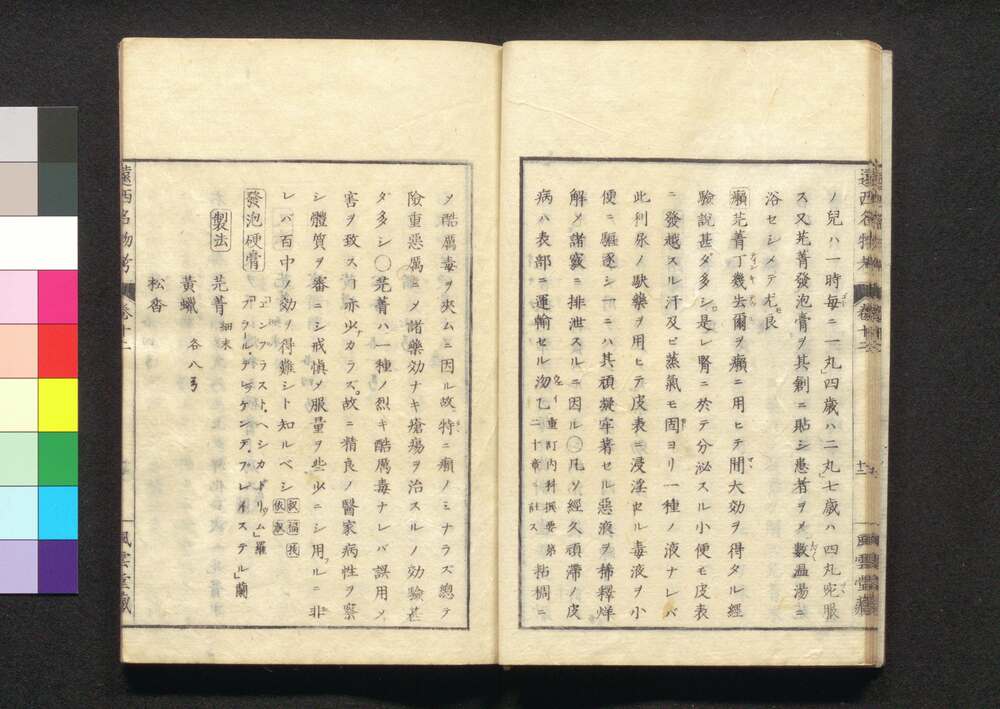 ノ兒ハ一時毎ニ一丸」四歳ハ二丸」七歳ハ四丸蛇脹
ス又芫菁發泡膏ヲ其創ニ貼シ患者ヲメ數温湯ニ
浴セシメテ尤良
癩芫菁丁幾去爾ヲ癩ニ用ヒテ間大効ヲ得タル經
驗説甚ダ多シ是レ腎ニ於テ分泌スル小便モ皮表
ニ發越スル汗及ビ蒸氣モ固ヨリ一種ノ液ナレバ
此利尿ノ駃藥ヲ用ヒテ皮表ニ浸淫セル毒液ヲ小
便ニ驅逐シ一ニハ其頑凝牢著セル惡液ヲ稀釋烊
解メ諸竅ニ排泄スルニ因ル〇凡ソ經久頑滯ノ皮
病ハ表部ニ運輸セル沕乙 重訂内科撰要第二十章ニ註ス 粘稠ニ
遠西名物考 卷十二
十二
風雲堂藏
メ酷厲毒ヲ夾ムニ因ル故特ニ癩ノミナラズ總テ
險重惡厲ニメ諸藥効ナキ瘡瘍ヲ治スルノ効驗甚
ダ多シ〇芫菁ハ一種ノ烈キ酷厲毒ナレバ誤用メ
害ヲ致スヿ亦少カラズ故ニ精良ノ醫家病性ヲ察
シ體質ヲ審ニシ戒愼メ服量ヲ些少ニシ用ルニ非
レバ百中ノ効ヲ得難シト知ルベシ
發泡硬膏 「エンプラストム・ヘシカトリウム」羅
製法
芫菁 細末
黃蠟 各八弓
松香
遠西名物考 卷十二
風雲堂藏